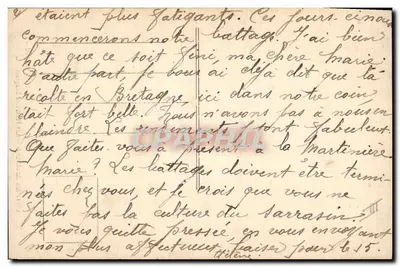 étaient plus fatigants. Ces jours ci nous
commencerons notre battage. J'ai bien
hâte que ce soit fini, ma chère Marie
D'autre part, je vous ai déjà dit que la
récolte en Bretagne, ici dans notre coin
était fort belle. Nous n'avons pas à nous en
plaindre. Les sont fabuleux
Que faites vous à présent à la Martinière
Marie? Les battages doivent être termi-
nés chez vous, et je crois que vous ne
faites pas la culture du sarrasin.
Je vous quitte pressée en vous envoyant
mon plus affectueux baiser pour le 15.
Hélène